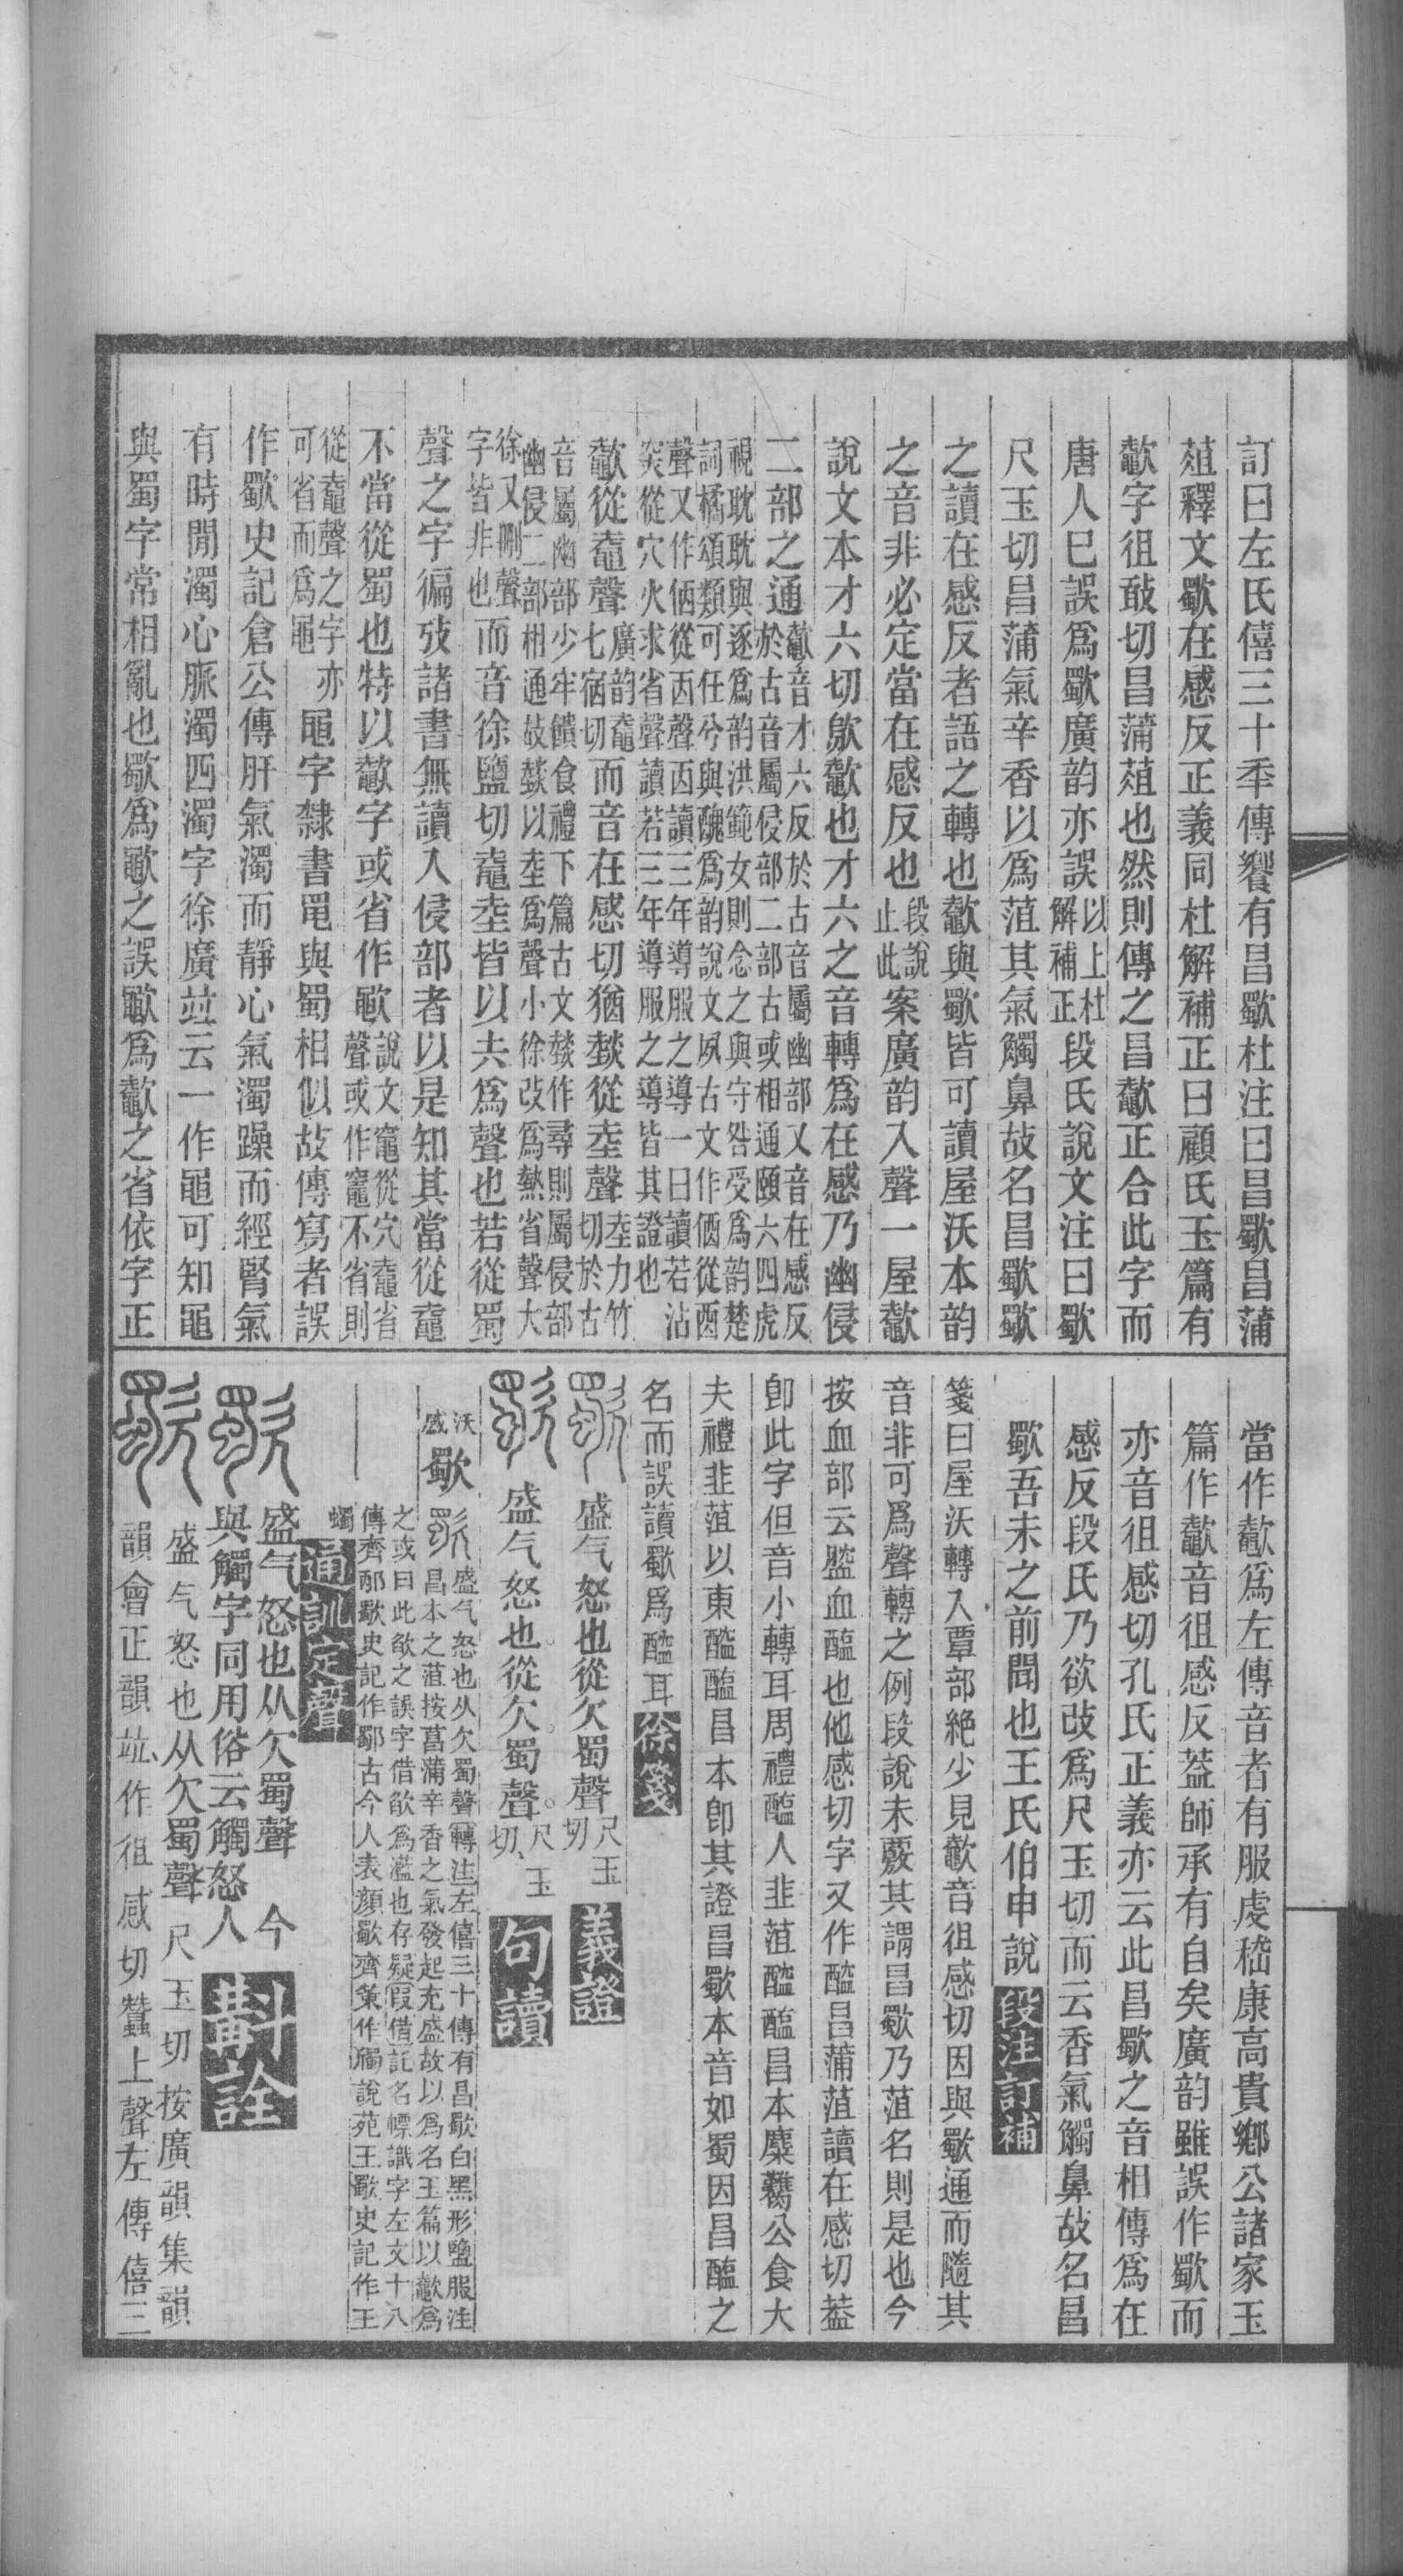 訂曰左氏僖三十年傳饗有昌歜杜注曰昌歜昌蒲
葅釋文歜在感反正義同杜解補正曰顧氏玉篇有
歜字徂敢切昌蒲葅也然則傳之昌歜正合此字而
唐人已誤爲歜廣韵亦誤以上杜解補正段氏說文注曰歜
尺玉切昌蒲氣辛香以爲菹其氣觸鼻故名昌歜歜
之讀在感反者語之轉也歜與歜皆可讀屋沃本韵
之音非必定當在感反也段說止此案廣韵入聲一屋歜
說文本才六切歍歜也才六之音轉爲在感乃幽侵
二部之通歜音才六反於古音屬幽部又音在感反於古音屬侵部二部古或相通頤六四虎
視耽耽與逐爲韵洪範女則念之與守咎受爲韵楚詞橘頌類可任兮與醜爲韵說文夙古文作㑉從㐁
聲又作㑉從㐁聲㐁讀三年導服之導一曰讀若沾突從穴火求省聲讀若三年導服之導皆其證也
歜從鼀聲廣韵鼀七宿切而音在感切猶㷎從坴聲坴力竹切於古
音屬幽部少牢饋食禮下篇古文㷎作尋則屬侵部幽侵二部相通故㷎以坴爲聲小徐改爲熱省聲大
徐又刪聲字皆非也而音徐鹽切鼀坴皆以圥爲聲也若從蜀
聲之字徧攷諸書無讀入侵部者以是知其當從鼀
不當從蜀也特以歜字或省作歜說文竈從穴鼀省聲或作竈不省則
從鼀聲之字亦可省而爲黽黽字隸書黽與蜀相似故傳寫者誤
作歜史記倉公傳肝氣濁而靜心氣濁躁而經腎氣
有時閒濁心脈濁四濁字徐廣竝云一作黽可知黽
與蜀字常相亂也歜爲歜之誤歜爲歜之省依字正
當作歜爲左傳音者有服虔嵇康高貴鄉公諸家玉
篇作歜音徂感反葢師承有自矣廣韵雖誤作歜而
亦音徂感切孔氏正義亦云此昌歜之音相傳爲在
感反段氏乃欲改爲尺玉切而云香氣觸鼻故名昌
歜吾未之前聞也王氏伯申說段注訂補
箋曰屋沃轉入覃部絕少見歜音徂感切因與歜通而隨其
音非可爲聲轉之例段說未覈其謂昌歜乃菹名則是也今
按血部云䘓血醢也他感切字又作醓昌蒲菹讀在感切葢
卽此字但音小轉耳周禮醢人韭菹醓醢昌本麋臡公食大
夫禮韭菹以東醓醢昌本卽其證昌歜本音如蜀因昌醢之
名而誤讀歜爲醓耳徐箋
盛气怒也從欠蜀聲尺玉切義證
盛气怒也從欠蜀聲尺玉切句讀
沃感歜盛气怒也从欠蜀聲轉注左僖三十傳有昌歜白黑形鹽服注昌本之菹按菖蒲辛香之氣發起充盛故以爲名玉篇以歜爲
之或曰此欿之誤字借欿爲濫也存疑假借託名幖識字左文十八傳齊邴歜史記作鄐古今人表顏歜齊策作斶說苑王歜史記作王
蠋通訓定聲
盛气怒也从欠蜀聲今與觸字同用俗云觸怒人斠詮
盛气怒也从欠蜀聲尺玉切按廣韻集韻
韻會正韻竝作徂感切蠶上聲左傳僖三